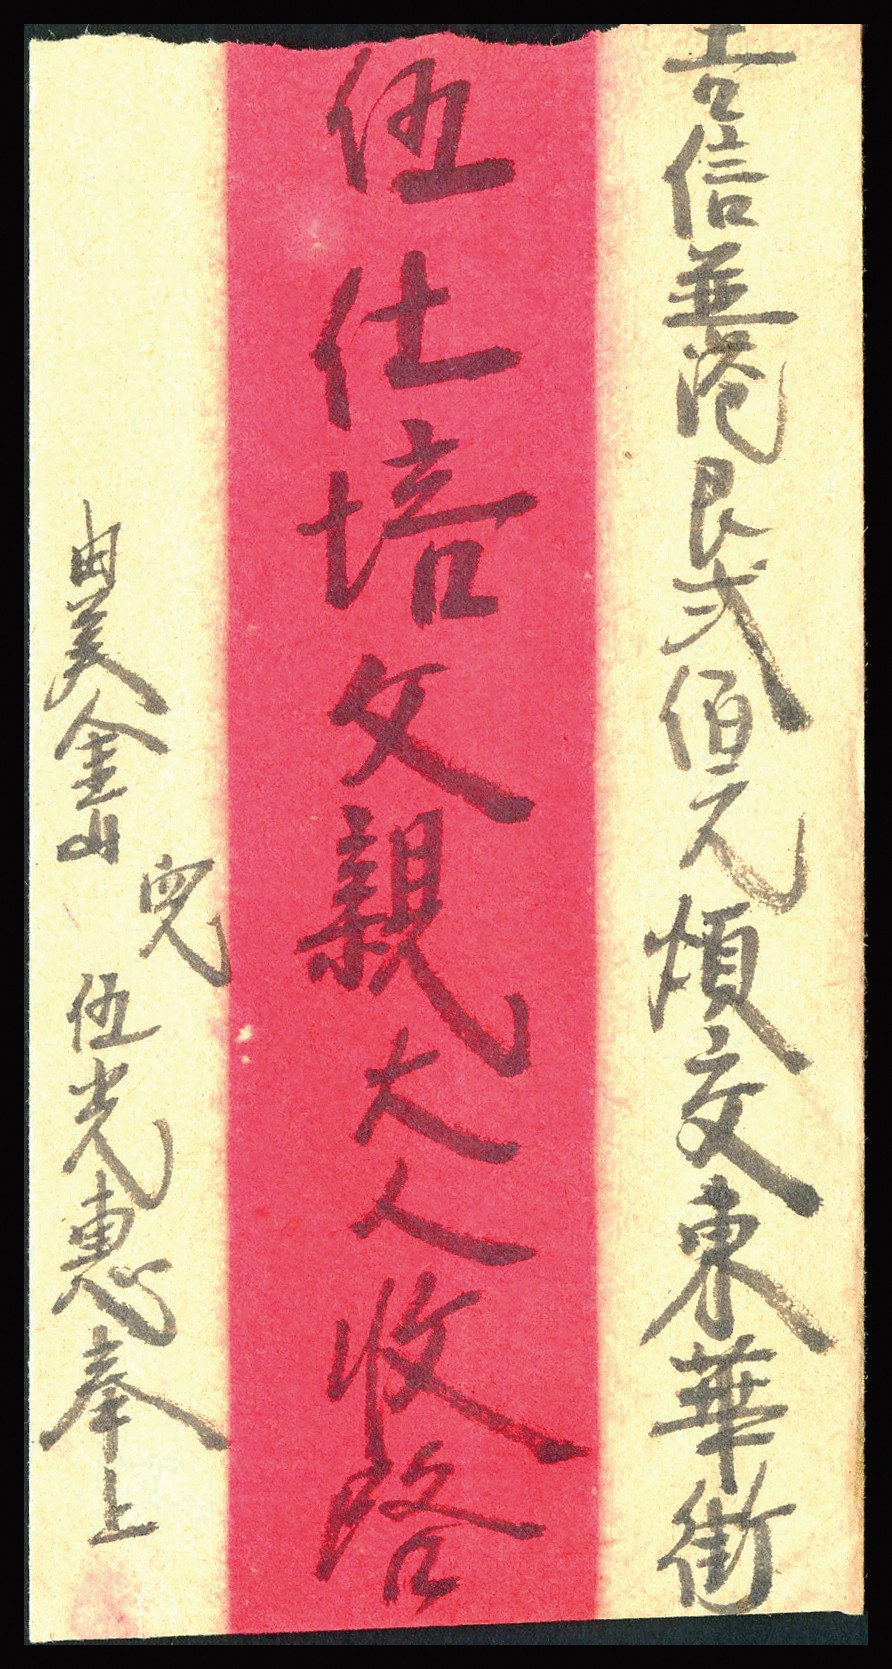 信並港艮弍佰元煩交東華街
伍仕培父親大人收啓
由美金山
兒
伍光惠奉上